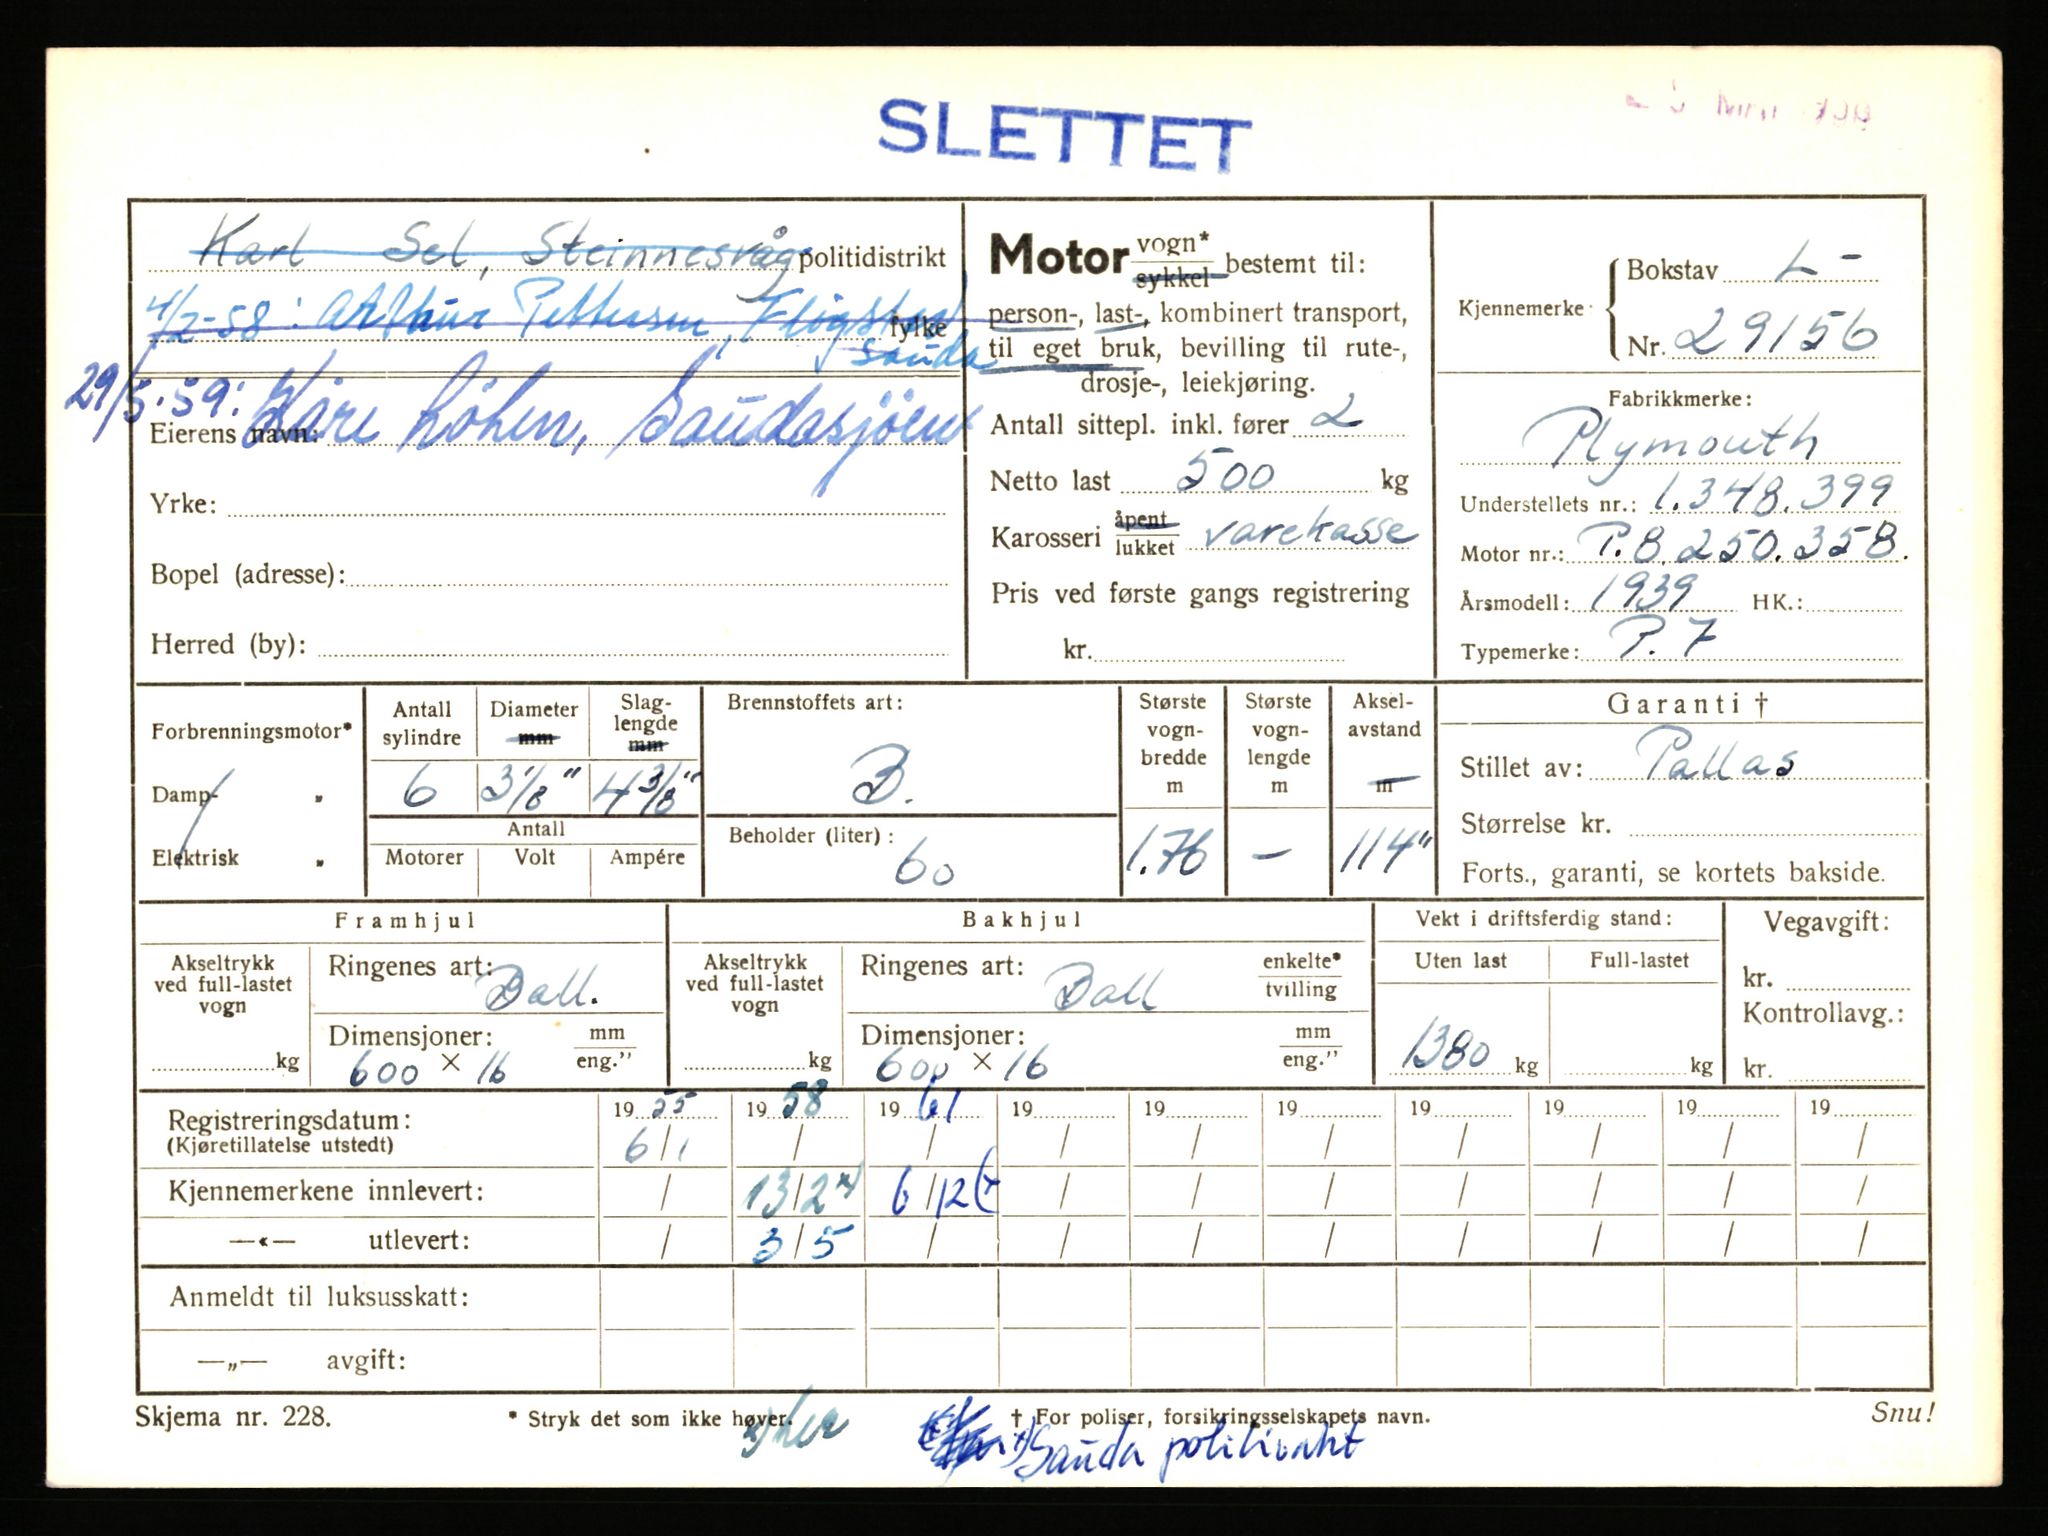 SLETTET
Karl Sel, Steinnesvåg politidistrikt
4/2-58: Arthur Pettersen, Fløgstad fylke
Sauda
29/5-59: Kåre Løhen, Saudasjøen
Eierens navn:
Yrke:
Bopel (adresse):
Herred (by):
Motor vogn* sykkel bestemt til:
person-, last-, kombinert transport,
til eget bruk, bevilling til rute-,
drosje-, leiekjøring.
Antall sittepl. inkl. fører 2
Netto last 500 kg
Karosseri åpent lukket varekasse
Pris ved første gangs registrering
kr.
Kjennemerke Bokstav L-
Nr. 29156
Fabrikkmerke:
Plymouth
Understellets nr.: 1.348.399
Motor nr.: P.8.250.358.
Årsmodell: 1939 HK.:
Typemerke: P.7
Forbrenningsmotor*
Damp- „
Elektrisk „
Antall sylindre
6
Diameter mm
3 1/8"
Slag-lengde mm
4 3/8"
Antall
Motorer Volt Ampére
Brennstoffets art:
B.
Beholder (liter):
60
Største vogn-bredde m
1.76
Største vogn-lengde m
—
Aksel-avstand m
114"
Garanti †
Stillet av: Pallas
Størrelse kr.
Forts., garanti, se kortets bakside.
Framhjul
Akseltrykk ved full-lastet vogn
kg
Ringenes art: Ball.
Dimensjoner: mm eng."
600 × 16
Bakhjul
Akseltrykk ved full-lastet vogn
kg
Ringenes art: Ball enkelte* tvilling
Dimensjoner: mm eng."
600 × 16
Vekt i driftsferdig stand:
Uten last Full-lastet
1380 kg kg
Vegavgift:
kr.
Kontrollavg.:
kr.
Registreringsdatum: 19 55 19 58 19 61 19 19 19 19 19 19 19
(Kjøretillatelse utstedt) 6/1 / / / / / / / / /
Kjennemerkene innlevert: / 13/2 x) 6/12 (x / / / / / / /
—«— utlevert: / 3/5 / / / / / / / /
Anmeldt til luksusskatt:
—„— avgift:
Skjema nr. 228. * Stryk det som ikke høver. † For poliser, forsikringsselskapets navn. Snu!
x) her x) Sauda politivakt